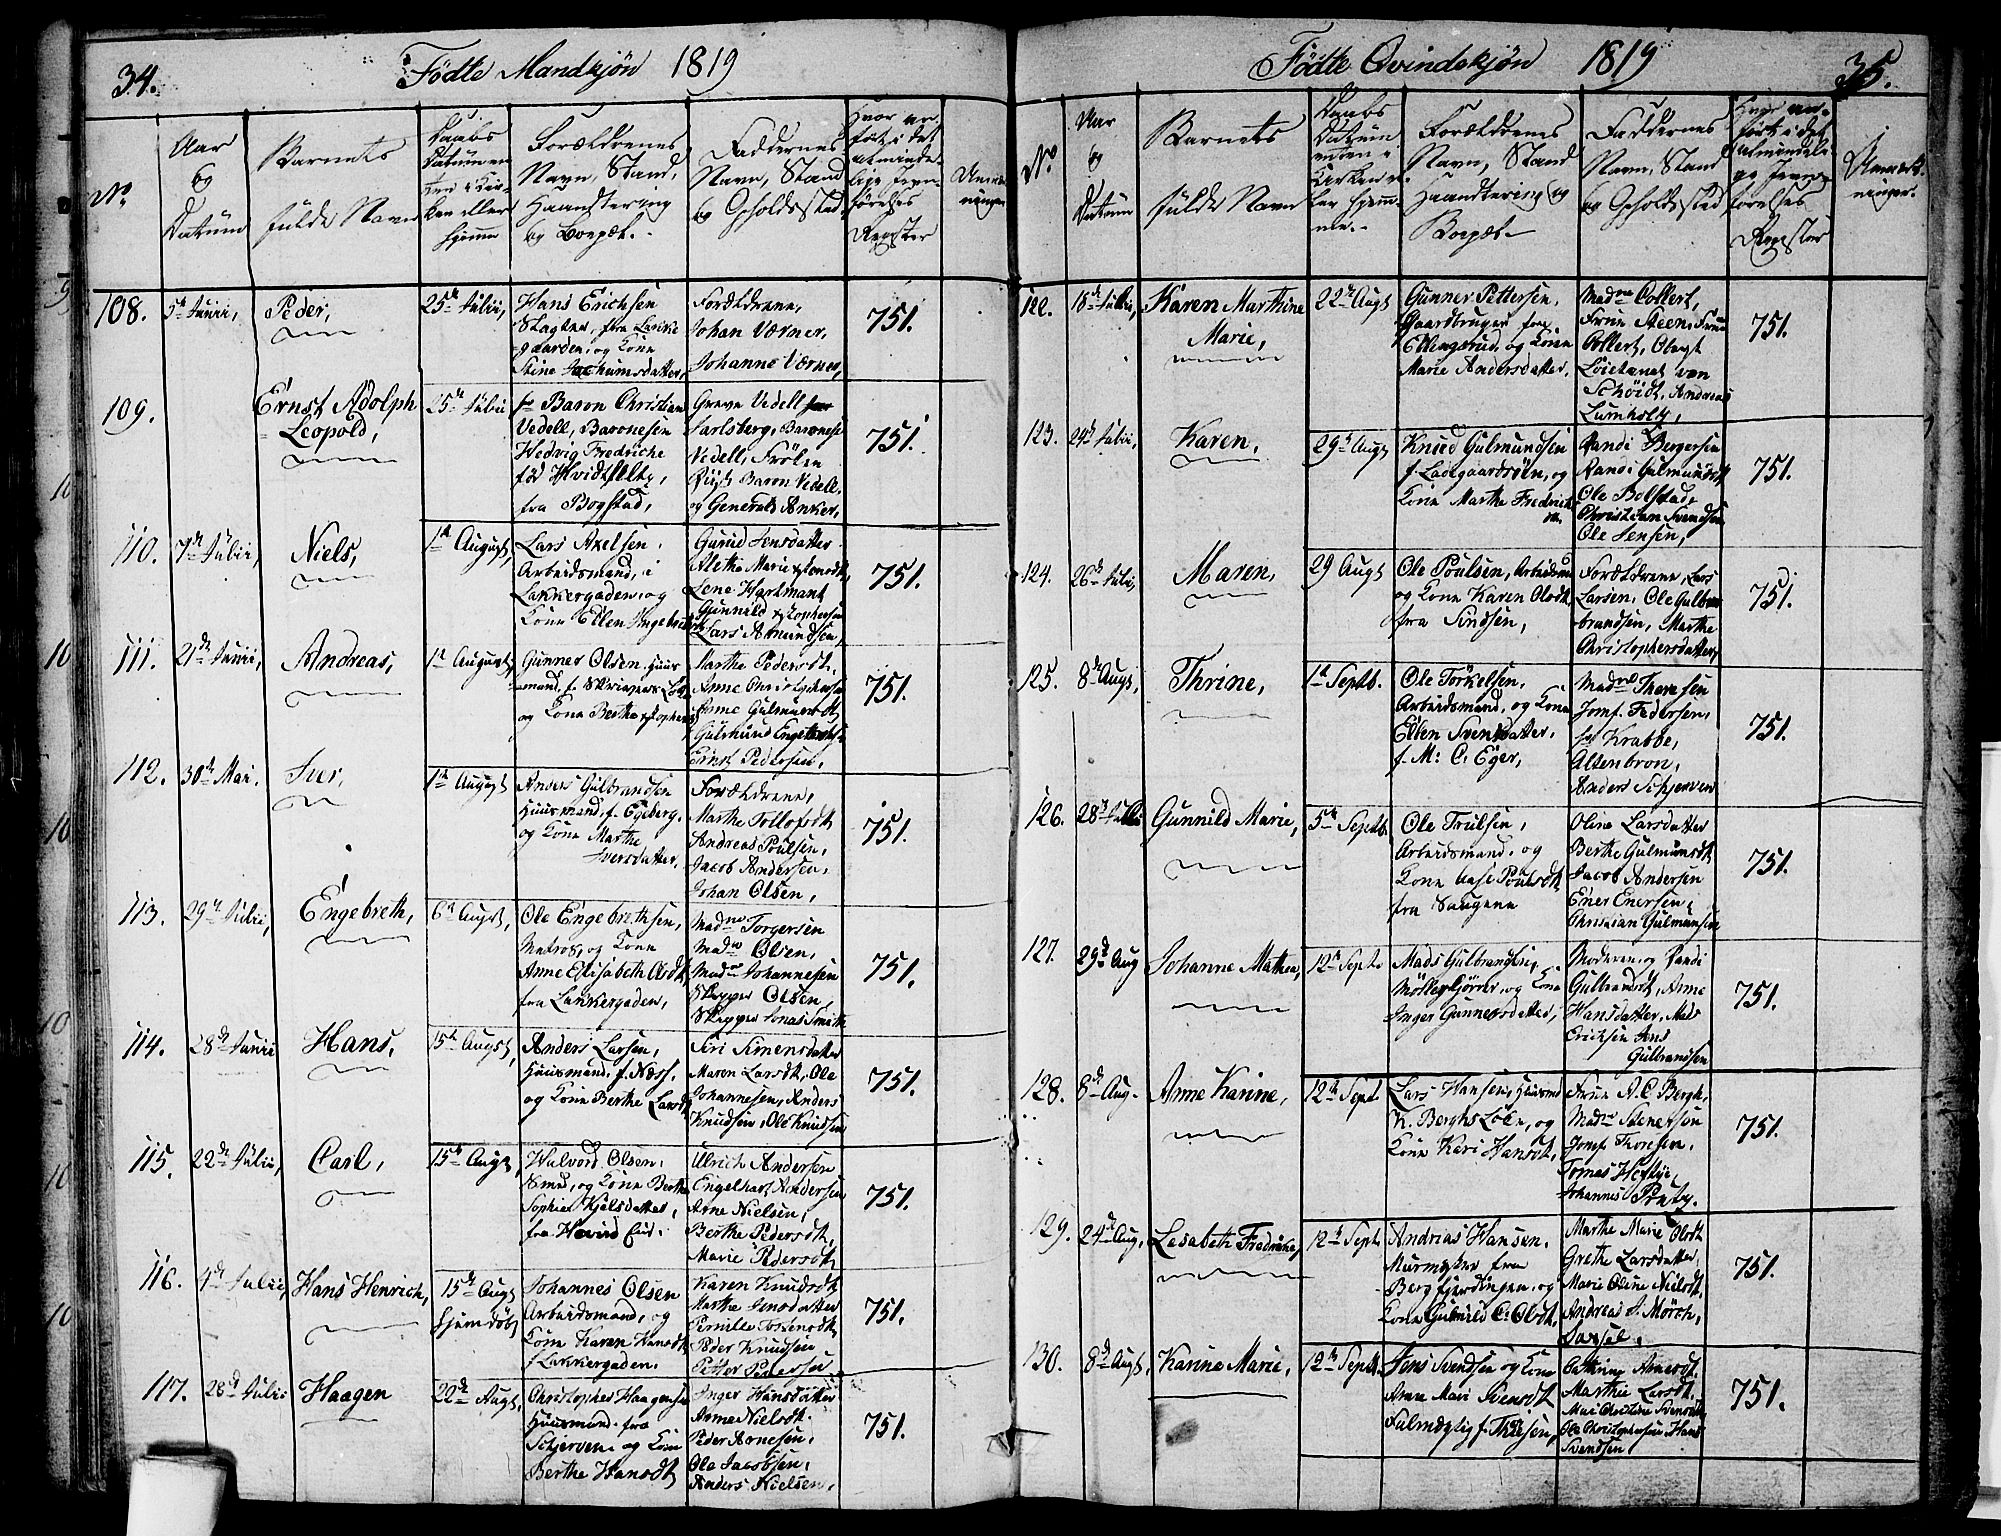 34.
Födte Mandkjøn 1819
No.
Aar
og
Datum
Barnets
fulde Navn
Daabs
Datum en
ten i Kir-
ken eller
hjemme
Forældrenes
Navn, Stand,
Haandtering
og Boepæl.
Faddernes
Navn, Stand
og Opholdssted
Hvor an-
ført i det
almindelige
Jevn-
førelses
Register
Anmærk-
ninger
108.
5te Junii,
Peder,
25de Julii,
Hans Erichsen
Slagter, fra Lakke
gaarden, og Kone
Stine Jochumsdatter,
Forældrene,
Johan Værner,
Johanne Værner,
751.
109.
Ernst Adolph
Leopold,
25de Julii
Baron Christian
Vedell, Baronesen
Hedvig Fredriche
fød Hvidtfeldt,
fra Bogstad,
Greve Vedell
Jarlsberg, Baronese
Vedell, Frölen
Baron Vedell,
og General Anker,
751.
110.
7de Julii,
Niels,
1te August,
Lars Axelsen,
Arbeidsmand, i
Lakkergaden, og
Kone Ellen Ingebretsdt
Gurid Jensdatter
Alethe Marie
Lene Hartmant
Gunnild
Lars Amundsen,
751.
111.
21de Junii,
Andreas,
1te August,
Gunner Olsen, Huus
mand, f. Skrivers Løk
og Kone Berthe
Marthe Pedersdt,
Anne Christophersen
Anne Gulmundsdt
Gulmund Engebrethsen
Ernst Pedersen,
751.
112.
30te Mai.
Iver,
1te August
Anders Gulbrandsen
Huusmand, f. Egeberg,
og Kone Marthe
Iversdatter,
Forældrene,
Marthe Tollefsdt
Andreas Poulsen,
Jacob Andersen,
Johan Olsen,
751.
113.
29de Julii,
Engebreth,
6te August,
Ole Engebrethsen,
Matros, og Kone
Anne Elisabeth Olsdt
fra Lakkergaden,
Madme Torgersen
Madme Olsen,
Madme Johannesen
Skipper Olsen,
Skipper Jonas Smith
751.
114.
28de Junii
Hans,
15de August,
Anders Larsen,
Huusmand, f. Næss,
og Kone Berthe Larsdt
Siri Simensdatter
Maren Larsdt, Ole
Johannesen, Anders
Knudsen, Ole Knudsen
751.
115.
22de Julii,
Carl,
15de August,
Halvord Olsen,
Smed, og Kone Berthe
Sophie Kjelsdatter,
fra Hovind Eie.
Ulrich Andersen
Engelhart Andersen
Arne Nielsen,
Berthe Pedersdt,
Marie Pedersdt
751.
116.
4de Julii,
Hans Henrich,
15de Augs
hjemdöbt
Johannes Olsen
Arbeidsmand, og
Kone Karen Hansdt
f. Lakkergaden.
Karen Knudsdt
Marthe Jensdatter
Pernille Torkensdt
Peder Knudsen
Petter Pedersen
751.
117.
28de Julii
Haagen
22de Augs,
Christopher Haagensen
Huusmand fra
Schjerven og Kone
Berthe Hansdt
Inger Hansdatter
Anne Nielsdt.
Peder Arnesen,
Ole Jacobsen,
Anders Nielsen,
751.
35.
Födte Qvindekjøn 1819
No.
Aar
og
Datum
Barnets
fulde Navn
Daabs
Datum
enten i
Kirken el-
ler hjem-
me.
Forældrenes
Navn, Stand
Haandtering og
Boepæl
Faddernes
Navn, Stand
og Opholdssted
Hvor an-
ført i det
almindeli-
ge Jevn-
førelses
Register
Anmærk-
ninger.
122.
18de Julii,
Karen Marthine
Marie,
22de Augs
Gunner Pettersen,
Gaardbruger fra
Ellingsrud, og Kone
Marie Andersdatter,
Madme Collert,
Frue Steen, Frue
Collert, Olaugt
Löitenant von
Schöidt, Andreas
Lumholtz,
751.
123.
24de Julii,
Karen,
29de Augs
Knud Gulmundsen
f. Ladegaardsöen, og
Kone Marthe Fredriks
Randi Bergersen
Randi Gulmundsdt
Ole Bolstad,
Christian Svendsen
Ole Jensen,
751.
124.
26de Julii,
Maren,
29 Augs
Ole Poulsen, Arbeidsm
og Kone Karen Olsdt,
fra Sindsen,
Forældrene, Lars
Larsen, Ole Gulbrandsen, Marthe
Christophersdatter,
751.
125.
8de Augs,
Thrine,
1te Septb.
Ole Torkelsen,
Arbeidsmand, og Kone
Ellen Svensdatter,
f. M: C. Eger,
Madme Thoresen
Jomf. Pedersen,
Krabbe,
Altenbron,
Anders Schjerven
751.
126.
28de Julii
Gunnild Marie,
5te Septb.
Ole Trulsen,
Arbeidsmand, og
Kone Aase Poulsdt
fra Saugene
Oline Larsdatter
Berthe Gulmundsdt
Jacob Andersen
Ener Enersen,
Christian Gulmundsen
751.
127.
29de Aug
Johanne Mathea,
12te Septb
Mads Gulbrandsen,
Möllekjörer, og Kone
Inger Gunnersdatter,
Moderen, og Randi
Gulbrandsdt, Anne
Hansdatter, Mads
Ericksen Jens
Gulbrandsen
751.
128.
8de Aug.
Anne Karine,
12te Sept
Lars Hansen, Huusmd
K. Berghs Löke, og
Kone Kari Hansdt,
Frue A. C. Bergh,
Madme Stenersen
Jomf Thoresen,
Tomas Heftye,
Johannes Pratz.
751.
129.
24de Aug,
Lisabeth Fredrikke,
12te Sept
Andrias Hansen,
Murmester fra
Bergfjerdingen, og
Kone Gulmild C. Olsdt,
Marthe Marie Olsdt
Grethe Larsdatter,
Marie Oline Nielsdt,
Andreas J. Mörch,
751.
130.
8de Augs,
Karine Marie,
12te Septb.
Jens Svendsen og Kone
Anne Mari Svensdt
Fulmægtig f. Thiesen,
Cathrine Arnesdt,
Marthe Larsdt,
Mari Christine Svensdt
Ole Christophersen, Hans
Svendsen
751.